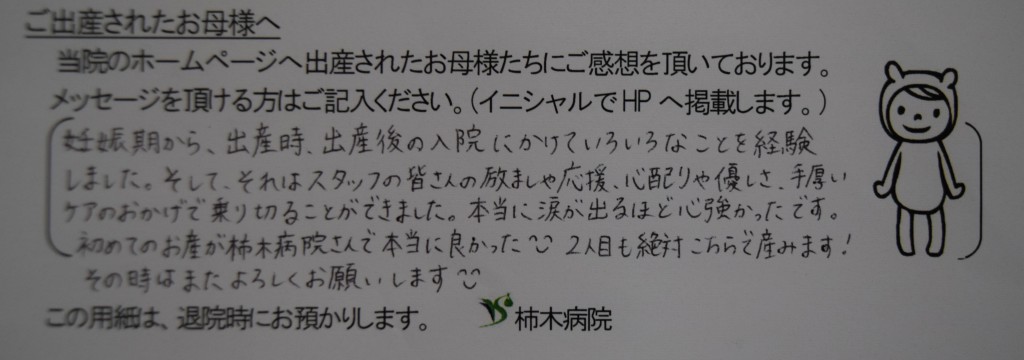 ご出産されたお母様へ
当院のホームページへ出産されたお母様たちにご感想を頂いております。
メッセージを頂ける方はご記入ください。(イニシャルでHPへ掲載します。)
妊娠期から、出産時、出産後の入院にかけていろいろなことを経験
しました。そして、それはスタッフの皆さんの励ましや応援、心配りや優しさ、手厚い
ケアのおかげで乗り切ることができました。本当に涙が出るほど心強かったです。
初めてのお産が柿木病院さんで本当に良かった 2人目も絶対こちらで産みます!
その時はまたよろしくお願いします
この用紙は、退院時にお預かりします。 柿木病院